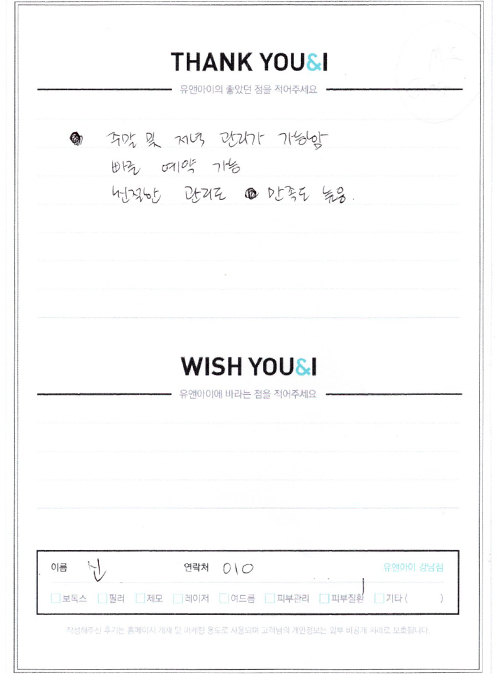 THANK YOU&I
유앤아이의 좋았던 점을 적어주세요
주말 및 저녁 관리가 가능함
바로 예약 가능
친절한 관리로 만족도 높음.
WISH YOU&I
유앤아이에 바라는 점을 적어주세요
이름 신 연락처 010 유앤아이 강남점
보톡스 필러 제모 레이저 여드름 피부관리 피부질환 기타 ( )
작성해주신 후기는 홈페이지 게재 및 마케팅 용도로 사용되며 고객님의 개인정보는 일부 비공개 처리로 보호됩니다.